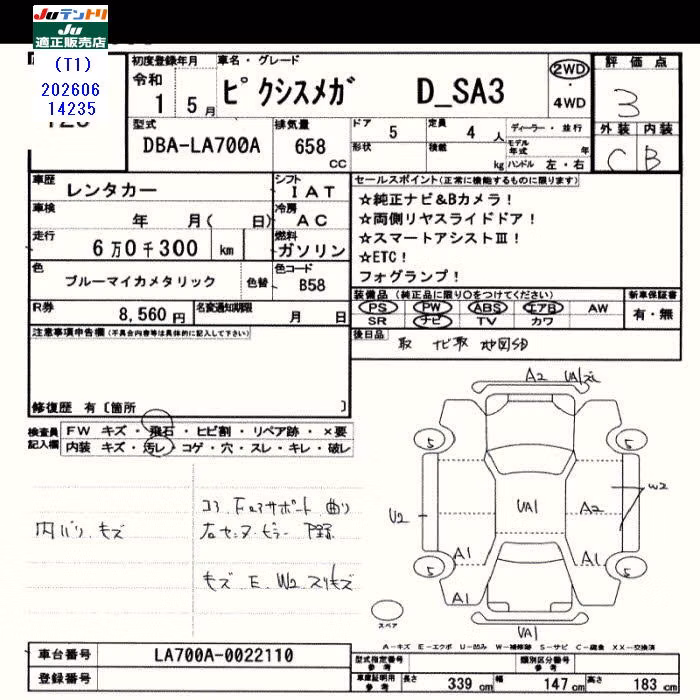 Juテントリ
Ju
適正販売店
(T1)
202606
14235
初度登録年月
令和
1 5月
車名・グレード
ピクシスメガ D_SA3
2WD
・
4WD
評価点
3
外装 内装
C B
型式
DBA-LA700A
排気量
658
CC
ドア
5
定員
4 人
形状
積載
kg
ディーラー・並行
モデル年式 年
ハンドル 左・右
車歴
レンタカー
シフト
IAT
車検
年 月( 日)
冷房
AC
走行
6万0千300 km
燃料
ガソリン
色
ブルーマイカメタリック
色替
色コード
B58
R券
8,560円
名変通知期限
月 日
セールスポイント(正常に機能するものに限ります)
☆純正ナビ&Bカメラ!
☆両側リヤスライドドア!
☆スマートアシストⅢ!
☆ETC!
フォグランプ!
装備品(純正品に限り○をつけてください)
PS PW ABS エアB AW
SR ナビ TV カワ
新車保証書
有・無
後日品
取 ナビ取 地図SD
注意事項申告欄(不具合内容等は具体的に記入して下さい)
修復歴 有〔箇所 〕
検査員
記入欄
FW キズ・飛石・ヒビ割・リペア跡・×要
内装 キズ・汚レ・コゲ・穴・スレ・キレ・破レ
内バリ キズ
コアサポート 曲り
右センターピラー
キズ E W2 スリキズ
A2 UA1
5
5
U2
UA1
A2
W2
A1
A1
5
5
A1
A1
UA1
スペア
A-キズ E-エクボ U-凹み W-補修跡 S-サビ C-腐食 XX-交換済
車台番号
LA700A-0022110
登録番号
型式指定番号
参考
類別区分番号
参考
車庫証明用
参考
長さ 339 cm 幅 147 cm 高さ 183 cm